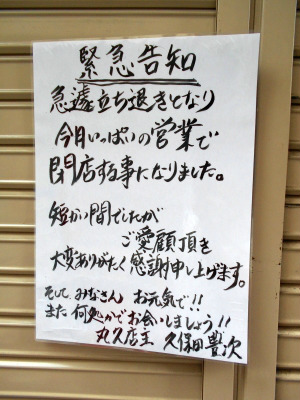 緊急告知
急遽立ち退きとなり
今日いっぱいの営業で
閉店する事になりました。
短かい間でしたが
ご愛顧頂き
大変ありがたく感謝申し上げます。
そして、みなさん お元気で!!
また 何処かでお会いしましょう!!
丸久店主 久保田豊次